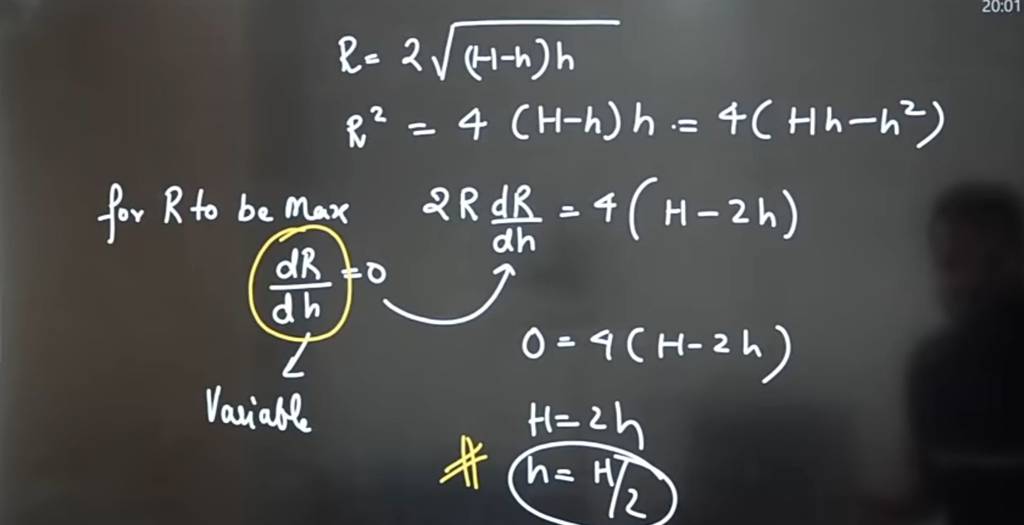 20:01
R= 2√(H-h)h
R² = 4 (H-h)h = 4(Hh-h²)
for R to be Max 2R dR/dh = 4(H-2h)
dR/dh =0
0=4(H-2h)
Variable
H=2h
# h= H/2